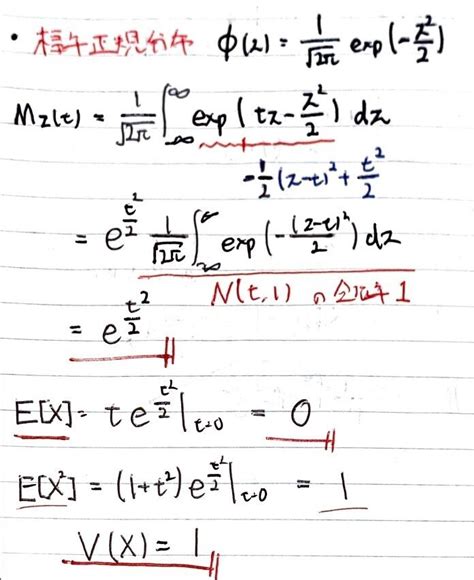 ・標準正規分布 φ(z) = 1/√2π exp(-z²/2)
Mz(t) = 1/√2π ∫_-∞^∞ exp(tz - z²/2) dz
-1/2 (z-t)² + t²/2
= e^(t²/2) 1/√2π ∫_-∞^∞ exp(-(z-t)²/2) dz
N(t,1) の全確率 1
= e^(t²/2)
E[X] = t e^(t²/2) |t=0 = 0
E[X²] = (1+t²) e^(t²/2) |t=0 = 1
V(X) = 1